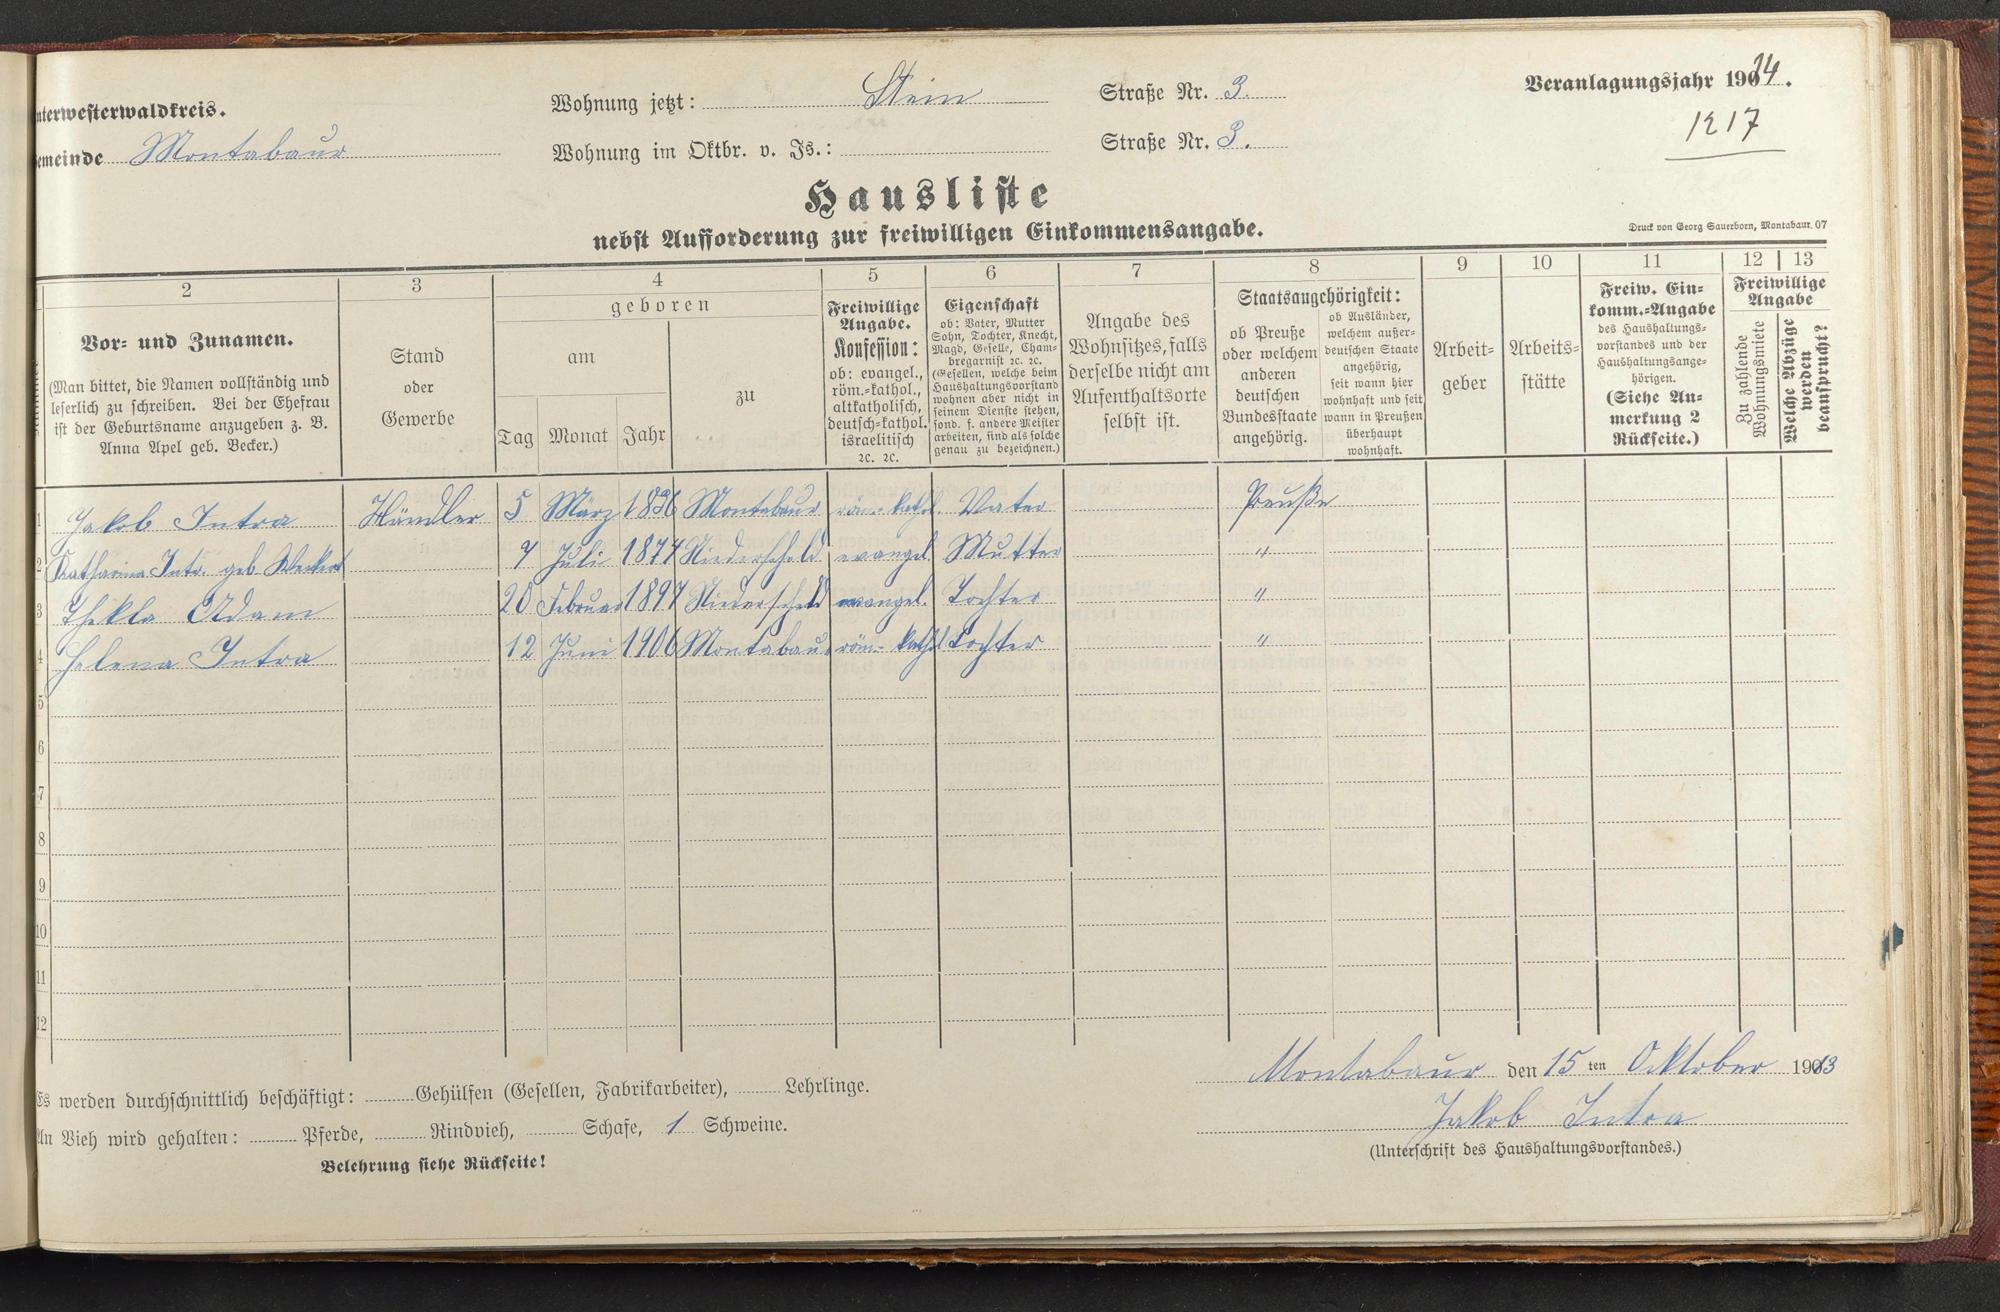 nterwesterwaldkreis.
emeinde Montabaur
Wohnung jetzt: Stein Straße Nr. 3.
Wohnung im Oktbr. v. Js.: Straße Nr. 3.
Veranlagungsjahr 1914.
1217
Hausliste
nebst Aufforderung zur freiwilligen Einkommensangabe.
Druck von Georg Sauerborn, Montabaur. 07
2 3 4 5 6 7 8 9 10 11 12 13
Vor- und Zunamen.
(Man bittet, die Namen vollständig und
leserlich zu schreiben. Bei der Ehefrau
ist der Geburtsname anzugeben z. B.
Anna Apel geb. Becker.)
Stand
oder
Gewerbe
geboren
am
Tag Monat Jahr
zu
Freiwillige
Angabe.
Konfession:
ob: evangel.,
röm.-kathol.,
altkatholisch,
deutsch-kathol.
israelitisch
2c. 2c.
Eigenschaft
ob: Vater, Mutter
Sohn, Tochter, Knecht,
Magd, Geselle, Cham-
bregarnist 2c. 2c.
(Gesellen, welche beim
Haushaltungsvorstand
wohnen aber nicht in
seinem Dienste stehen,
sond. f. andere Meister
arbeiten, sind als solche
genau zu bezeichnen.)
Angabe des
Wohnsitzes, falls
derselbe nicht am
Aufenthaltsorte
selbst ist.
Staatsangehörigkeit:
ob Preuße
oder welchem
anderen
deutschen
Bundesstaate
angehörig.
ob Ausländer,
welchem außer-
deutschen Staate
angehörig,
seit wann hier
wohnhaft und seit
wann in Preußen
überhaupt
wohnhaft.
Arbeit-
geber
Arbeits-
stätte
Freiw. Ein-
komm.-Angabe
des Haushaltungs-
vorstandes und der
Haushaltungsange-
hörigen.
(Siehe An-
merkung 2
Rückseite.)
Freiwillige
Angabe
Zu zahlende
Wohnungsmiete
Welche Abzüge
werden
beansprucht?
1 Jakob Intra Händler 5 März 1836 Montabaur röm.- kathol. Vater Preuße
2 Katharina Intr. geb. Weckert 7 Juli 1874 Niederscheld evangel. Mutter "
3 Thekla Adam 20 Februar 1897 Niederscheld evangel. Tochter "
4 Helena Intra 12 Juni 1906 Montabaur röm.- kathol Tochter "
5
6
7
8
9
10
11
12
Es werden durchschnittlich beschäftigt: Gehülfen (Gesellen, Fabrikarbeiter), Lehrlinge.
An Vieh wird gehalten: Pferde, Rindvieh, Schafe, 1 Schweine.
Belehrung siehe Rückseite!
Montabaur den 15 ten Oktober 1913
Jakob Intra
(Unterschrift des Haushaltungsvorstandes.)